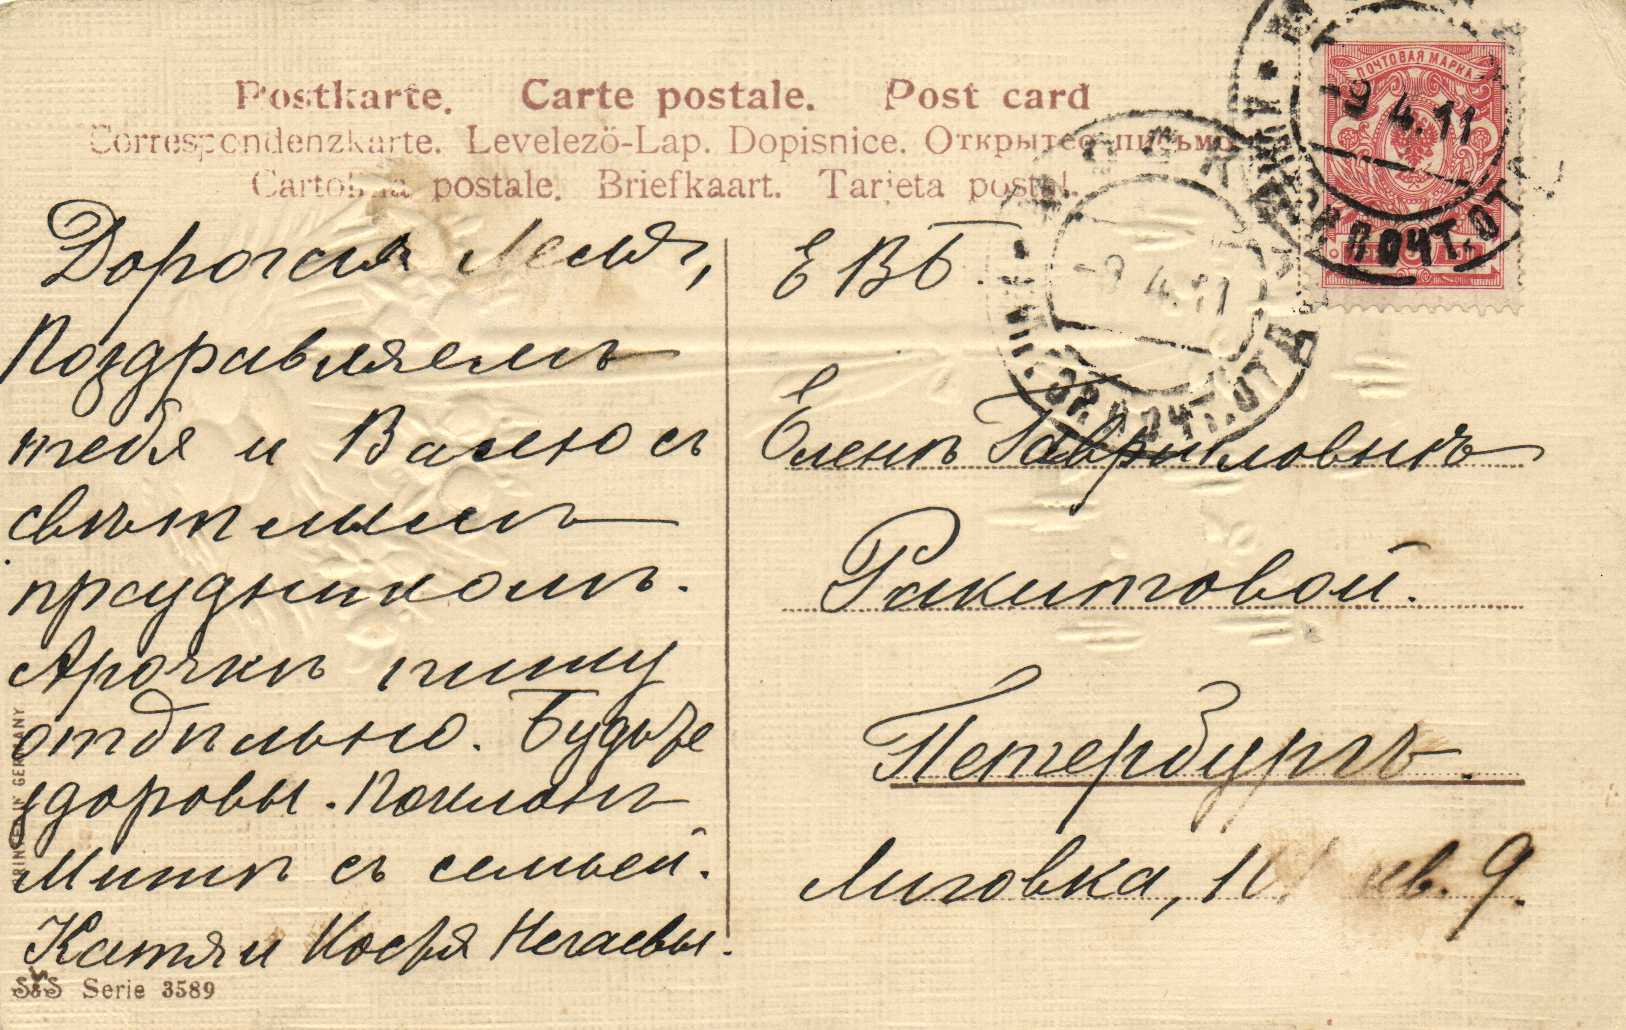 Postkarte. Carte postale. Post card
Correspondenzkarte. Levelezö-Lap. Dopisnice. Открытое письмо
Cartolina postale. Briefkaart. Tarjeta postal.
ПОЧТОВАЯ МАРКА
-9 4.11
-9 4.11
ПОЧТ.ОТ
ПОЧТ.ОТ
Дорогая Леля,
Поздравляемъ
тебя и Васю съ
свѣтлымъ
праздникомъ.
Арочкѣ пишу
отдѣльно. Будьте
здоровы. Поклонъ
Митѣ съ семьей.
Катя и Костя
ЕВБ.
Еленѣ Гавриловнѣ
Ракитовой.
Петербургъ.
Лиговка, кв. 9.
PRINTED IN GERMANY
S&S Serie 3589